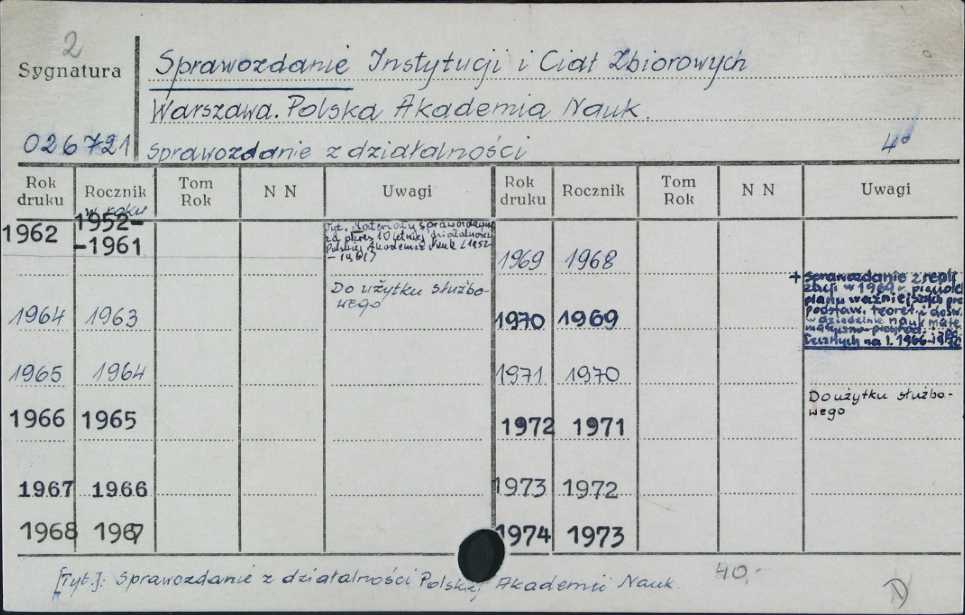 2
Sygnatura
Sprawozdanie Instytucji i Ciał Zbiorowych
Warszawa. Polska Akademia Nauk.
026721 Sprawozdanie z działalności 4°
Rok druku Rocznik Tom Rok N N Uwagi Rok druku Rocznik Tom Rok N N Uwagi
w roku
1962 1952- -1961
Tyt. Materiały sprawozdawcze
za okres 10 letniej działalności
Polskiej Akademii Nauk (1952
- 1961)
1969 1968
1964 1963 Do użytku służbo-
wego
1970 1969
+ Sprawozdanie z reali
zacji w 1969 r.
planu ważniejszych
podstaw. teoret. i dośw.
w dziedzinie nauk mate
na l. 1966-1970
1965 1964
1971 1970
1966 1965
1972 1971 Do użytku służbo-
wego
1967 1966
1973 1972
1968 1967
1974 1973
[Tyt.]: Sprawozdanie z działalności Polskiej Akademii Nauk.
40,-
D